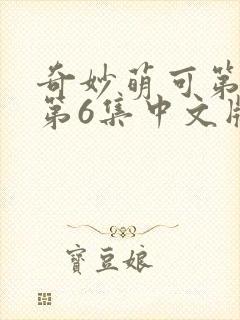 奇妙萌可第
第6集中文版
寶豆娘